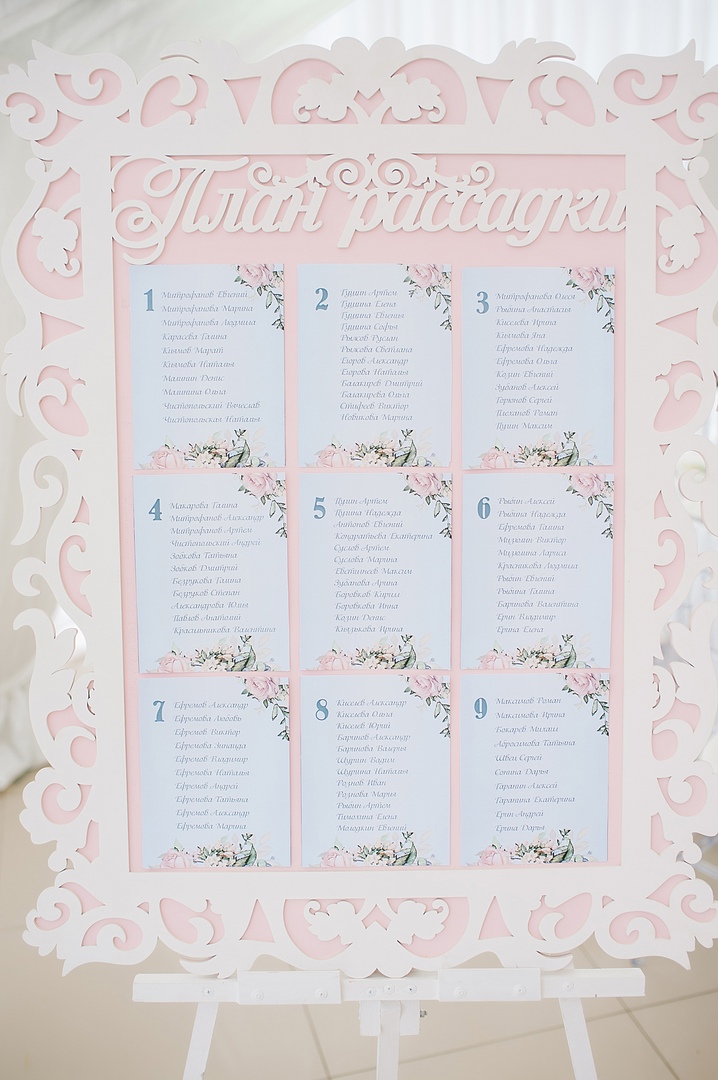 План рассадки
1
Митрофанов Евгений
Митрофанова Марина
Митрофанова Людмила
Карасева Галина
Киямов Марат
Киямова Наталья
Малинин Денис
Малинина Ольга
Чистопольский Вячеслав
Чистопольская Наталья
2
Гущин Артем
Гущина Елена
Гущина Евгения
Гущина Софья
Рыжов Руслан
Рыжова Светлана
Егоров Александр
Егорова Наталья
Башкиров Дмитрий
Башкирова Ольга
Стифеев Виктор
Новикова Марина
3
Митрофанова Олеся
Рыбина Анастасья
Киселева Ирина
Киямова Яна
Ефремова Надежда
Ефремова Ольга
Козин Евгений
Зубанов Алексей
Горюнов Сергей
Роман
Пугин Максим
4
Макарова Галина
Митрофанов Александр
Митрофанов Артем
Чистопольский Андрей
Зобкова Татьяна
Зобков Дмитрий
Безрукова Галина
Безруков Степан
Александрова Юлья
Павлов Анатолий
Красильникова Валентина
5
Пугин Артем
Пугина Надежда
Антонов Евгений
Кондратьева Екатерина
Суслов Артем
Суслова Марина
Евстигнеев Максим
Зубанова Арина
Боровков Кирилл
Боровкова Инна
Козин Денис
Князькова Ирина
6
Рыбин Алексей
Рыбина Надежда
Ефремова Галина
Мизякин Виктор
Мизякина Лариса
Красникова Людмила
Рыбин Евгений
Рыбина Галина
Баринова Валентина
Ерин Владимир
Ерина Елена
7
Ефремов Александр
Ефремова Любовь
Ефремов Виктор
Ефремова Зинаида
Ефремов Владимир
Ефремова Наталья
Ефремов Андрей
Ефремова Татьяна
Ефремов Александр
Ефремова Марина
8
Киселев Александр
Киселева Ольга
Киселев Юрий
Баринов Александр
Баринова Валерия
Шурыгин Вадим
Шурыгина Наталья
Рознов Иван
Рознова Марья
Рыбин Артем
Тимохина Елена
Молодкин Евгений
9
Максимов Роман
Максимова Ирина
Бокарев Михаил
Абросимова Татьяна
Швец Сергей
Сонина Дарья
Таранин Алексей
Таранина Екатерина
Ерин Андрей
Ерина Дарья